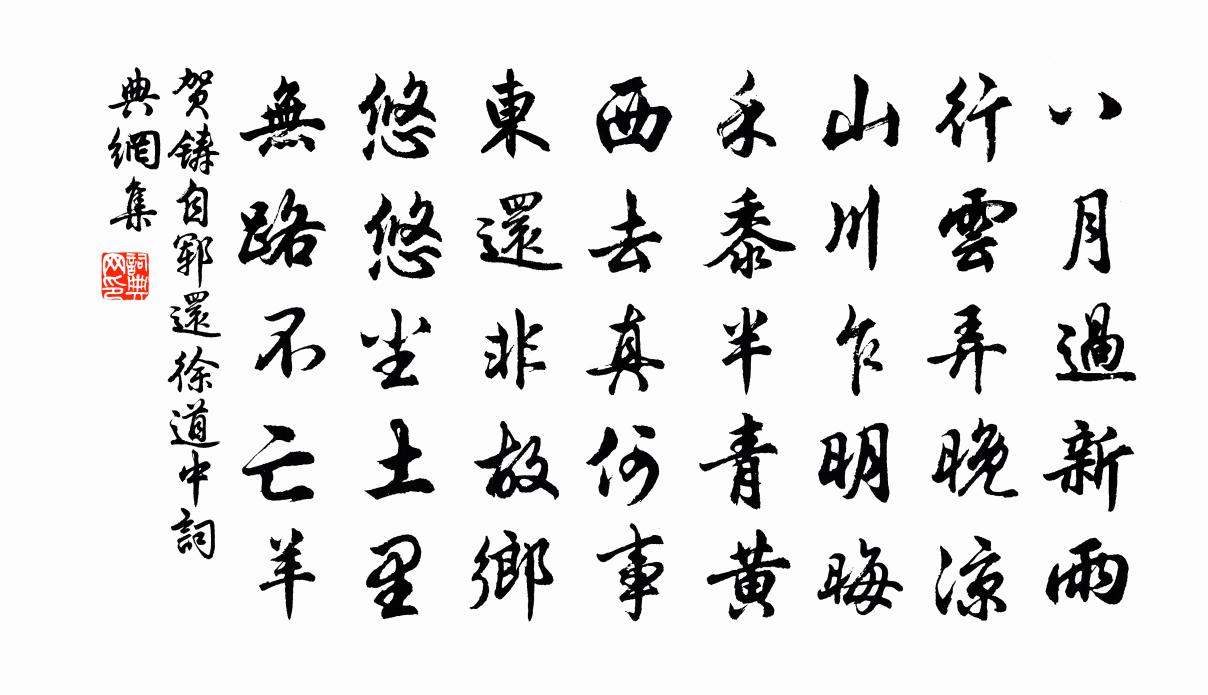 八月過新雨
行雲弄晚涼
山川乍明晦
禾黍半青黃
西去真何事
東還非故鄉
悠悠塵土里
無路不亡羊
賀鑄自鄆還徐道中詞
典網集
詞典
网印